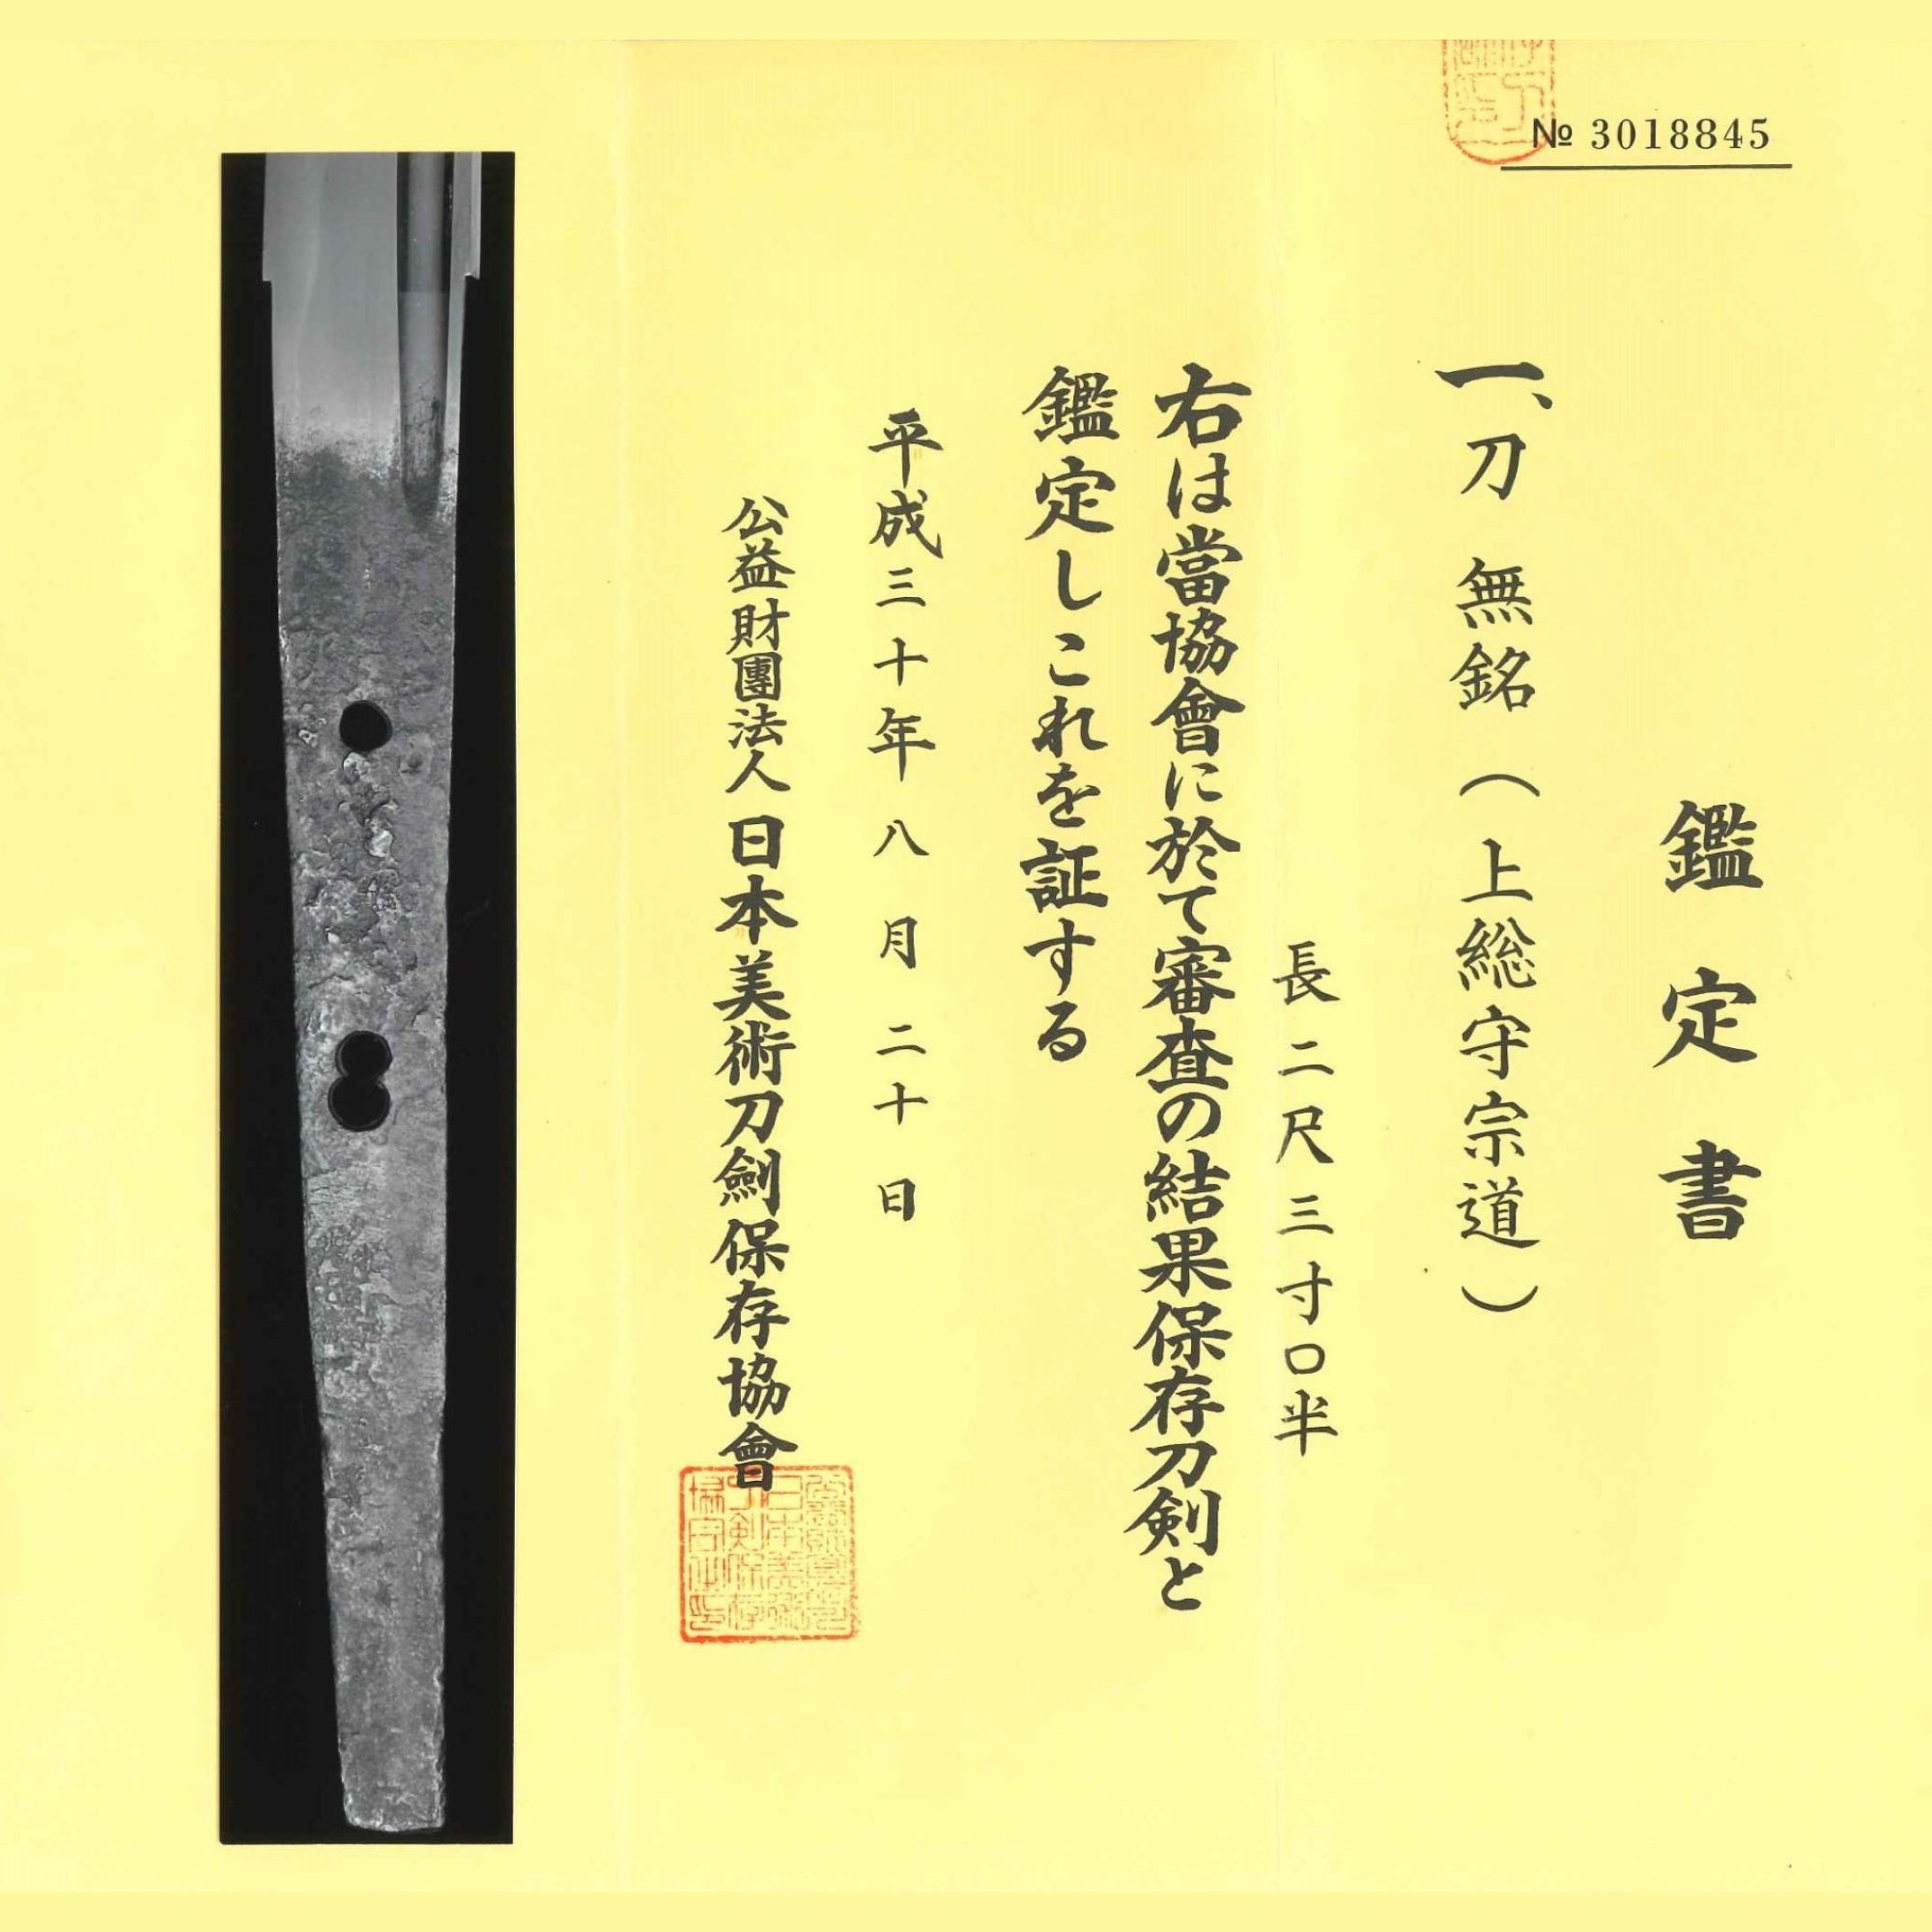 № 3018845
鑑定書
一、刀 無銘（上総守宗道）
長二尺三寸〇半
右は當協會に於て審査の結果保存刀剣と
鑑定しこれを証する
平成三十年八月二十日
公益財團法人日本美術刀劍保存協會